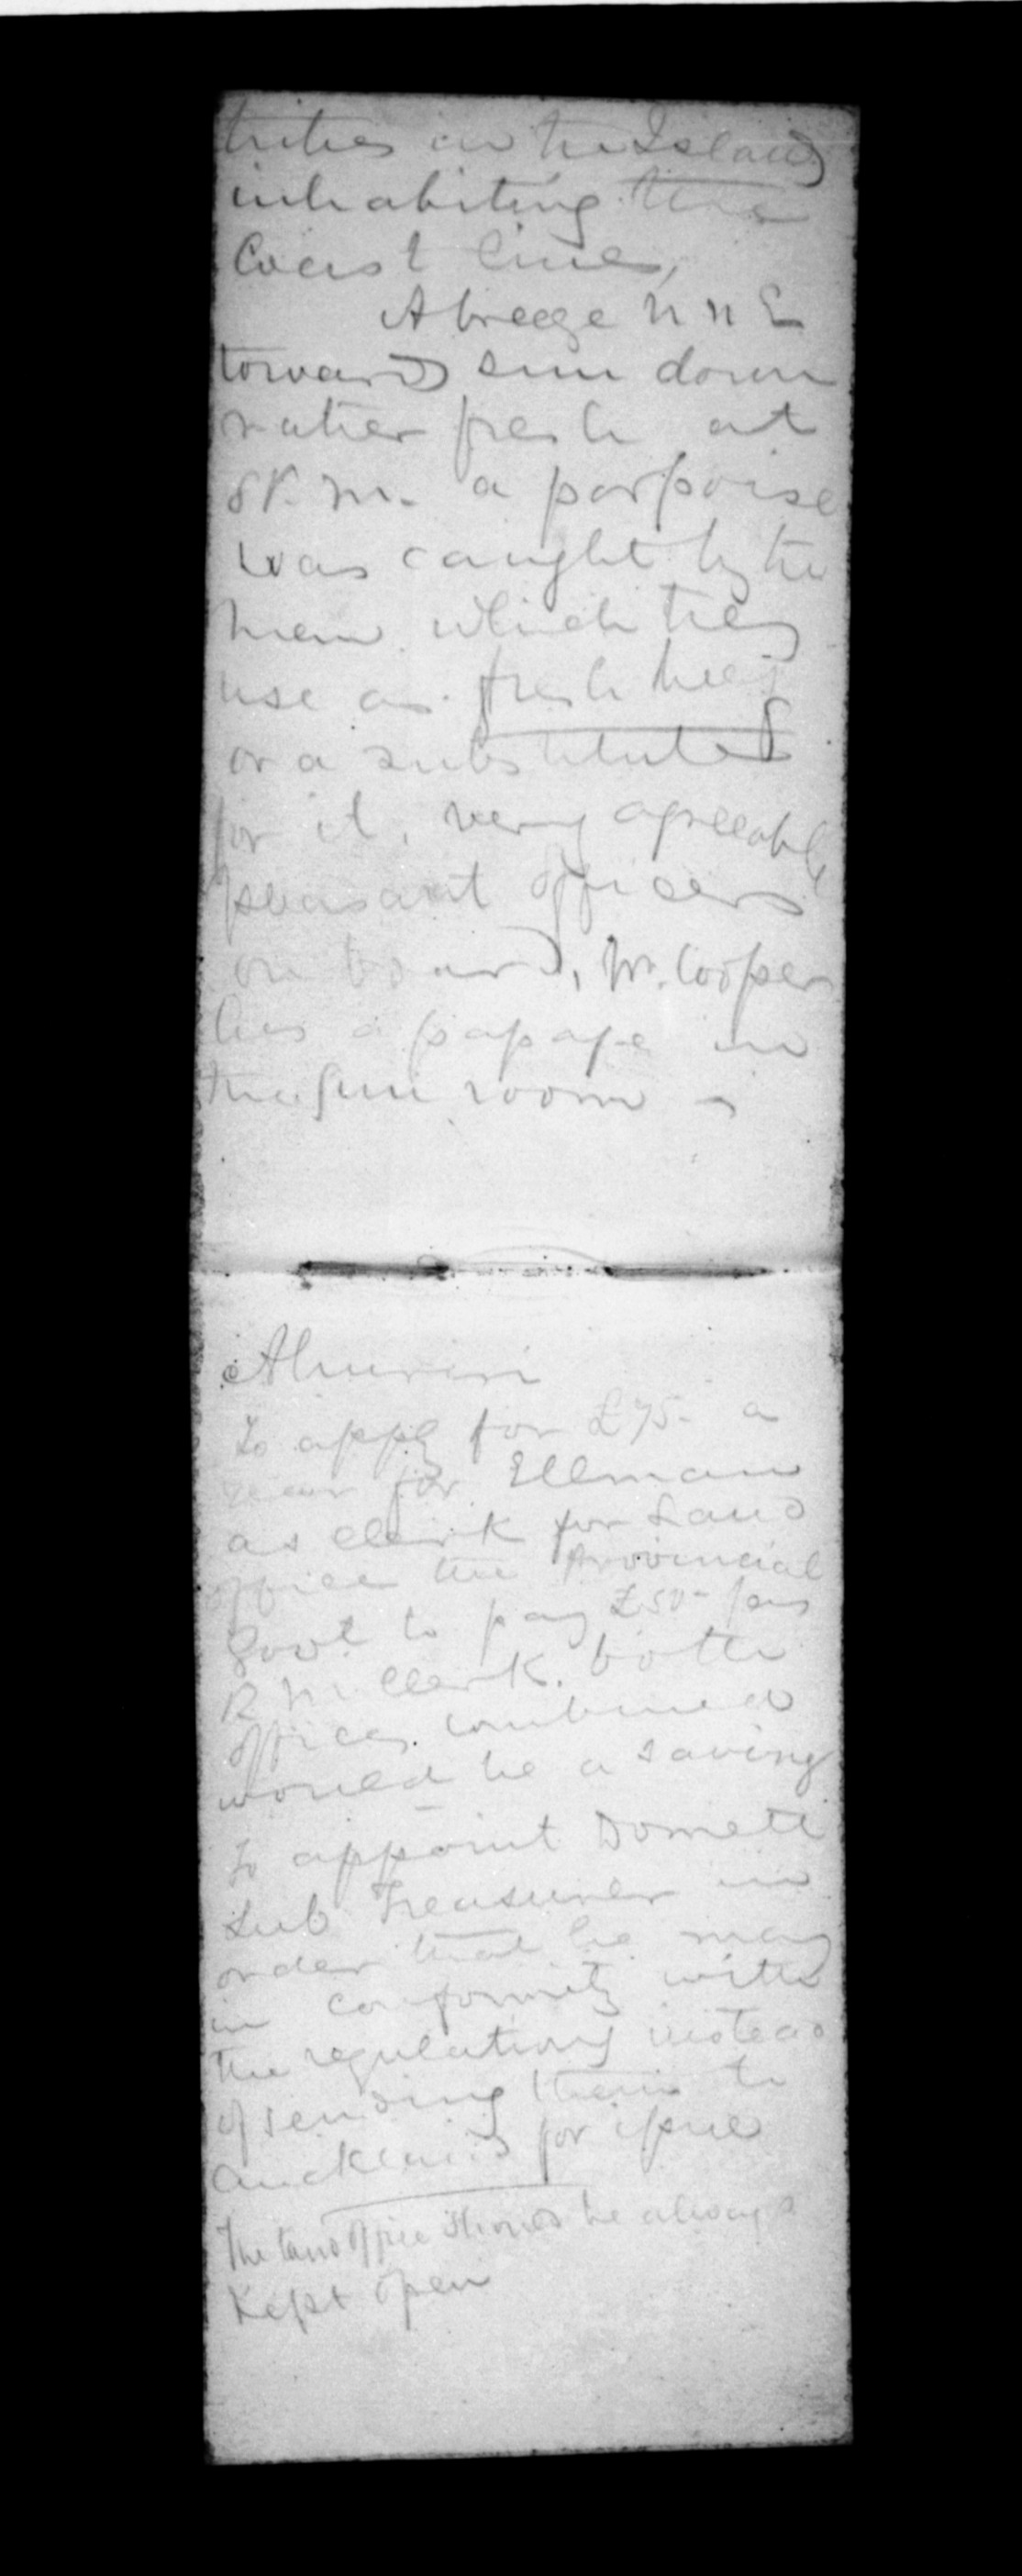 tribes in the Island
inhabiting the
Coast line,
A breeze N N E
towards sun down
rather fresh at
8 P. M. a porpoise
was caught by the
men which they
use as fresh beef
or a substitute
for it, very agreeable
pleasant officers
on board, Mr. Cooper
has a passage in
the gun room -
Ahuriri
To apply for £75- a
year for Ellman
as clerk for Land
office the Provincial
Govt to pay £50- for
R M Clerk. both
offices combined
would be a saving
To appoint Domett
Sub Treasurer in
order that he may
in conformity with
the regulations instead
of sending them to
Auckland for issue
The Land Office should be always
Kept open